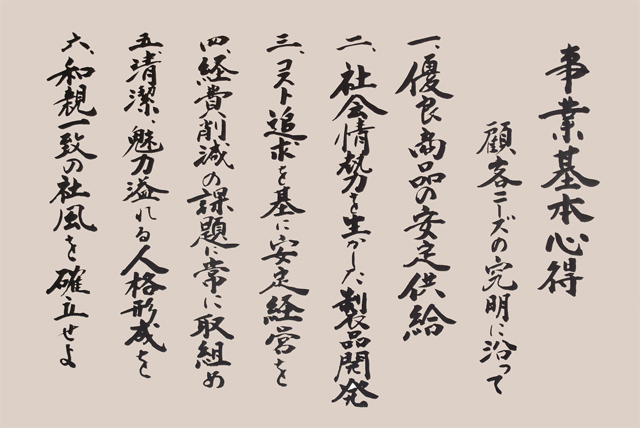 事業基本心得
顧客ニーズの究明に沿って
一、優良商品の安定供給
二、社会情勢を生かした製品開発
三、コスト追求を基に安定経営を
四、経費削減の課題に常に取組め
五、清潔、魅力溢れる人格形成を
六、和親一致の社風を確立せよ